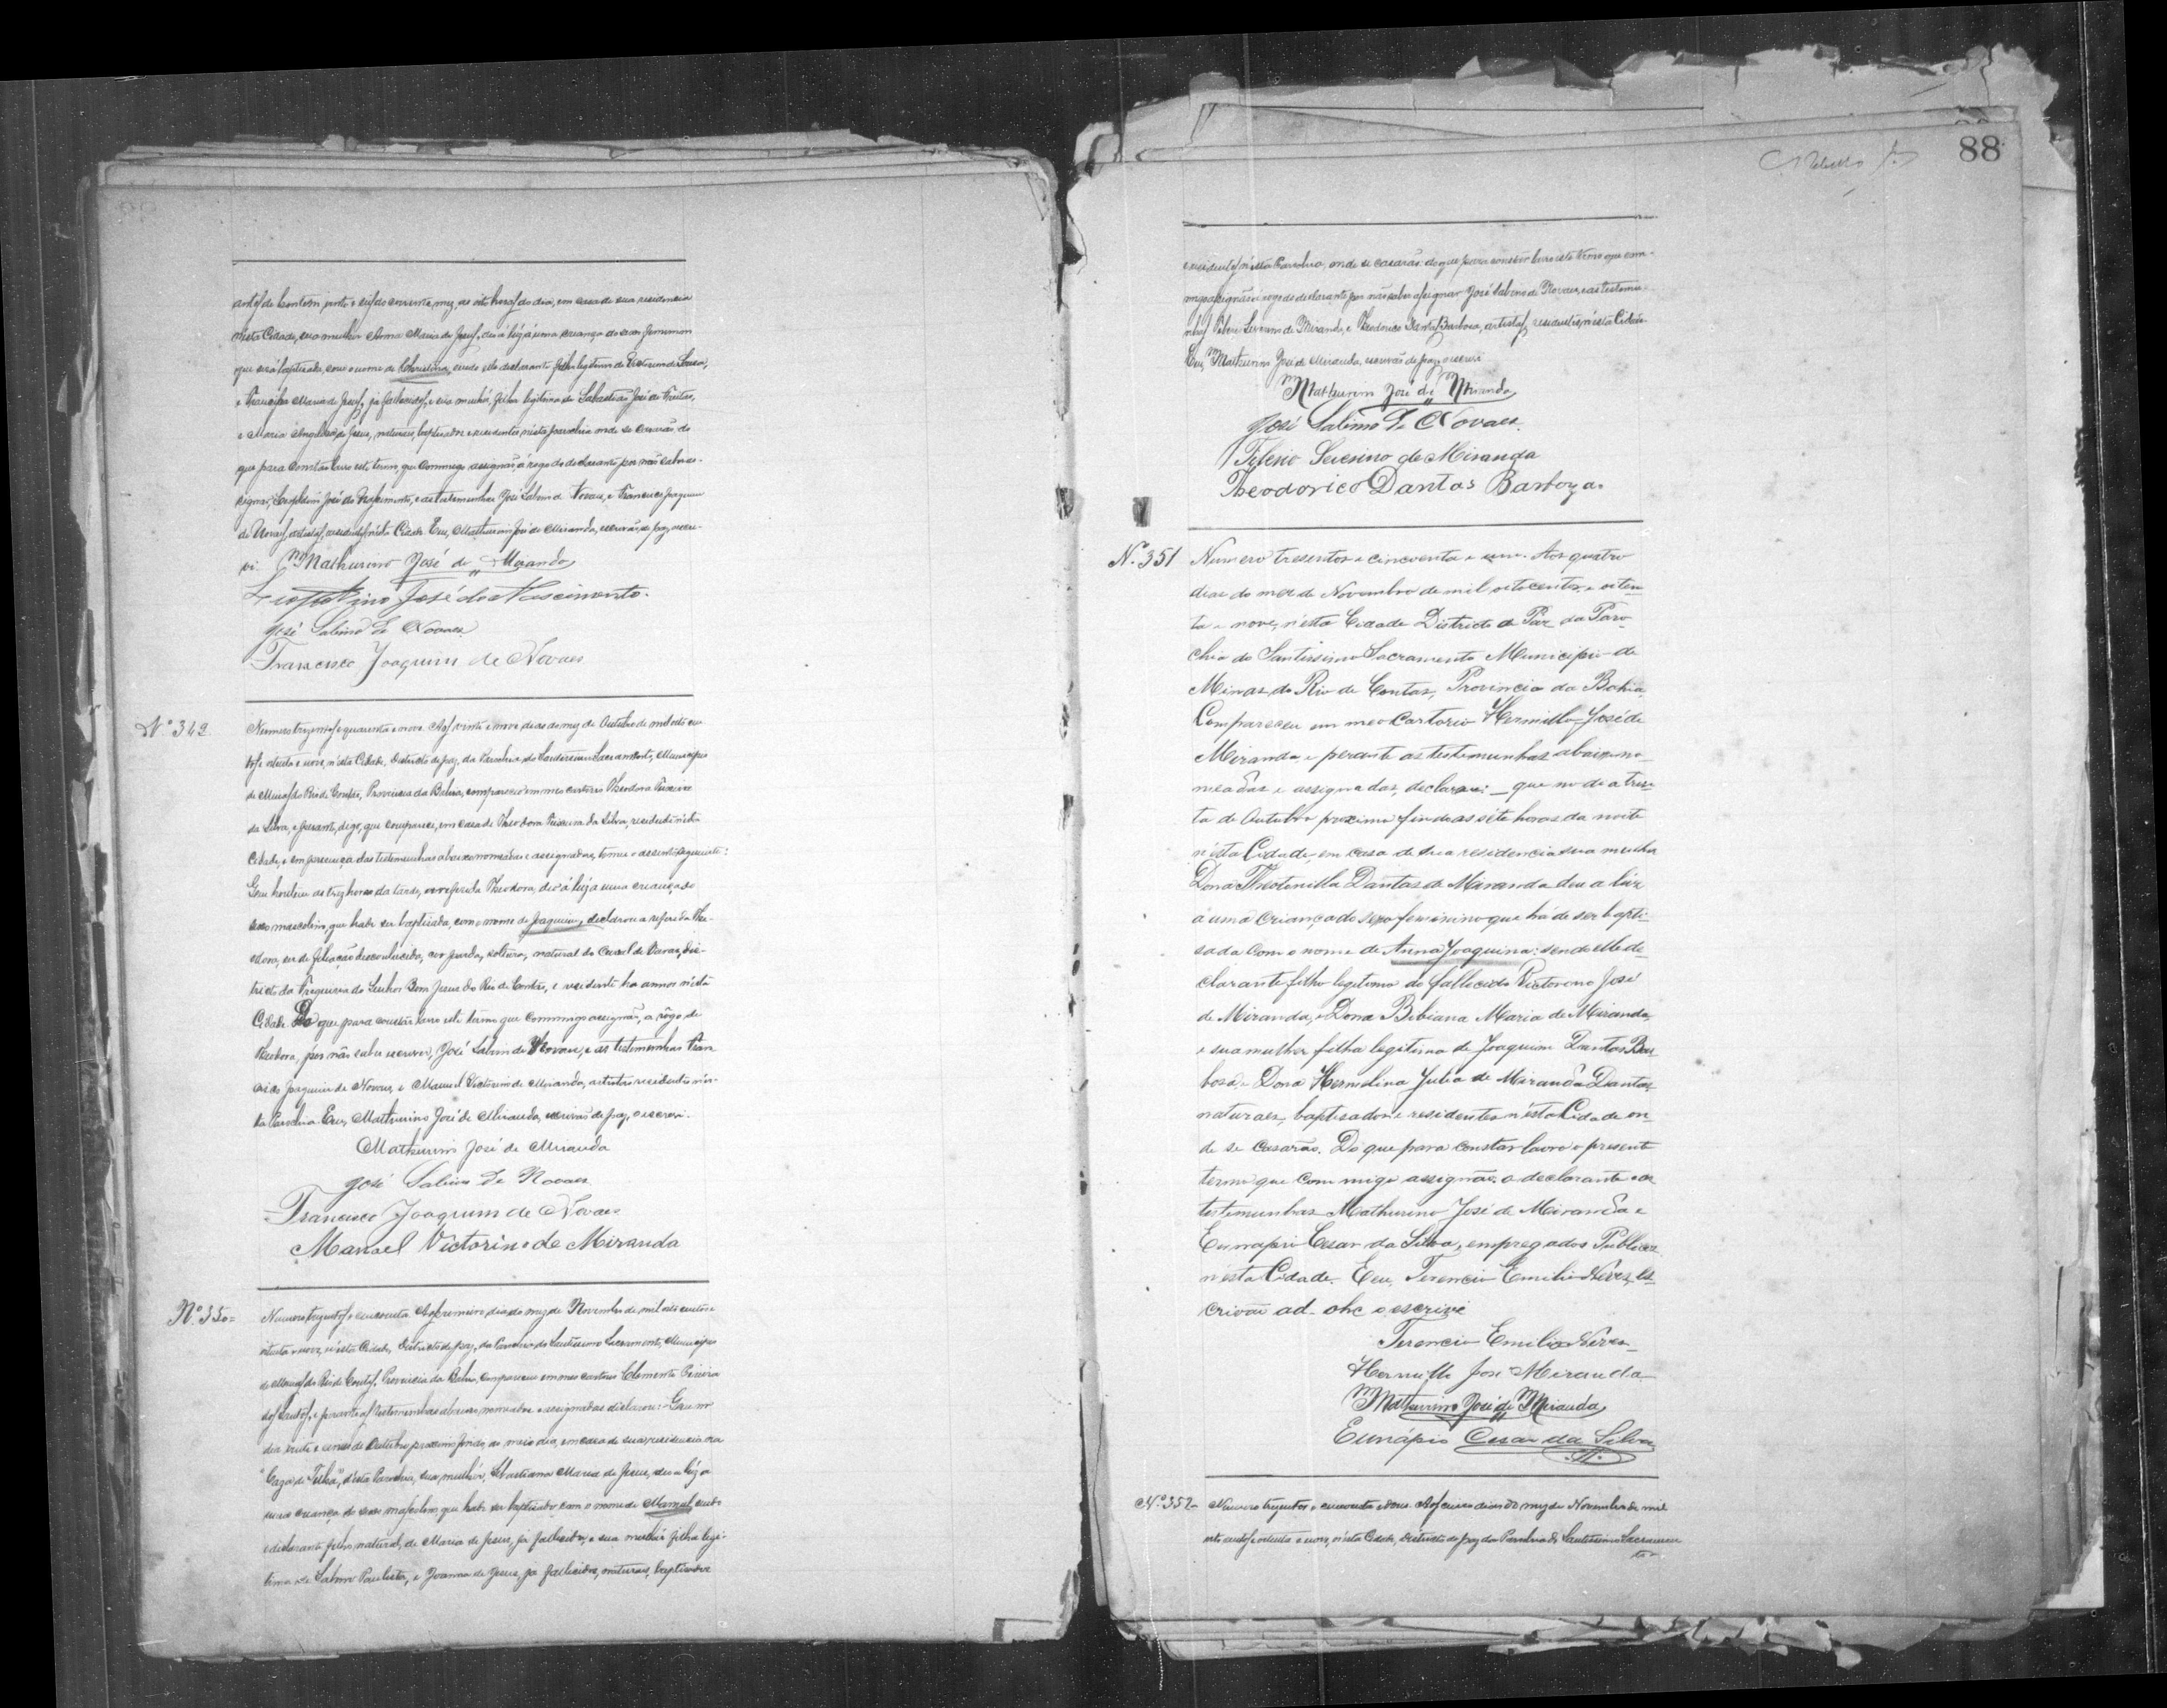 antes de hontem vinte e seis do corrente mez, as oito horas do dia, em casa de sua residencia
nesta Cidade, sua mulher Anna Maria de Jesus, deu á luz á uma criança do sexo femenino
que será baptisada, com o nome de Christina, sendo elle declarante filho legitimo de de Souza,
e Francisca Maria de Jesus, já fallecidos, e sua mulhér, filha legitima de Sebastião José de Freitas,
e Maria de Jesus, naturaes, baptisados e residentes nésta parochia onde se casarão; do
que para constar lavro este termo, que commigo assignão, á rogo do declarante por não saber as-
signar, José do Nascimento, e as testemunhas José Sabino de Novaes, e Francisco Joaquim
de Novaes, artistas, residentes nésta Cidade. Eu, Mathurino José de Miranda, escrivão de paz, escre-
vi. Mathurino José de Miranda
José do Nascimento.
José Sabino de Novaes
Francisco Joaquim de Novaes
Nº 349
Numero trezentos e quarenta e nove. Aos vinte e nove dias do mez de Outubro de mil oito cen-
tos e oitenta e nove, n'ésta Cidade, Districto de paz, da Parochia do Santissimo Sacramento, Municipio
de Minas do Rio de Contas, Provincia da Bahia, compareceu em meo cartorio Theodora Teixeira
da Silva, e perante, digo, que compareci, em casa de Theodora Teixeira da Silva, residente nésta
Cidade, e em presença das testemunhas abaixo nomeadas e assignadas, tomei o assento seguinte:
Que hontem as trez horas da tarde, a referida Theodora, deo á luz a uma criança do
sexo masculino, que hade ser baptisada, com o nome de Joaquim, declarou a referida The-
odora, ser de filiação desconhecida, côr parda, solteira, natural do de dis-
tricto da Freguesia do Senhor Bom Jesus do Rio de Contas, e residente ha annos nésta
Cidade. Do que para constar lavro este termo que commigo assignão, a rôgo de
Theodora, por não saber escrever, José Sabino de Novaes, e as testemunhas Fran-
cisco Joaquim de Novaes, e Manoel Victorino de Miranda, artistas residentes nés-
ta Parochia. Eu, Mathurino José de Miranda, escrivão de paz, o escrevi.
Mathurino José de Miranda
José Sabino de Novaes
Francisco Joaquim de Novaes
Manoel Victorino de Miranda
Nº 350=
Numero trezentos e cincoenta. Ao primeiro dia do mez de Novembro de mil oito centos e
oitenta e nove, n'ésta Cidade, Districto de paz, da Parochia do Santissimo Sacramento, Municipio
de Minas do Rio de Contas, Provincia da Bahia, compareceu em meo cartorio Clemente Pereira
dos Santos, e perante as testemunhas abaixo nomeadas e assignadas declarou: - Que no
dia vinte e cinco de Outubro proximo findo, ao meio dia, em casa de sua residencia na
"Lagôa de Telha", désta Parochia, sua mulhér, Sebastiana Maria de Jesus, deu a luz a
uma criança do sexo masculino, que hade ser baptisado, com o nome de Manoel, sendo
o declarante filho, natural, de Maria de Jesus, já fallecida, e sua mulhér filha legi-
tima de Sabino Paulista, e Joanna de Jesus, já fallecidos, naturaes, baptisados
88
e residentes, n'ésta Parochia, onde se casarão; do que para constar lavro este termo que com-
migo assignão á rogo do declarante por não saber assignar José Sabino de Novaes, e as testemu-
nhas Severino de Miranda, e Theodorico Dantas Barbosa, artistas, residentes, n'ésta Cidade.
Eu, Mathurino José de Miranda, escrivão de paz, o escrevi.
Mathurino José de Miranda
José Sabino de Novaes.
Severino de Miranda
Theodorico Dantas Barboza.
Nº. 351
Numero tresentos e cincoenta e um. Aos quatro
dias do mez de Novembro de mil oitocentos e oiten-
ta e nove, n'ésta Cidade Districto de Paz da Paro-
chia do Santissimo Sacramento Municipio de
Minas do Rio de Contas, Provincia da Bahia
Compareceu em meo Cartorio Hermillo José de
Miranda, e perante as testemunhas abaixo no-
meadas e assignadas, declarou: - que no dia trin-
ta de Outubro proximo findo as séte horas da noite
n'ésta Cidade, em casa de sua residencia sua mulher
Dona Theotenilla Dantas de Miranda deu a luz
a uma criança do sexo femenino que há de ser bapti-
sada com o nome de Anna Joaquina: sendo elle de-
clarante filho legitimo do fallecido Victorino José
de Miranda, e Dona Bibiana Maria de Miranda,
e sua mulher filha legitima de Joaquim Dantas Bar-
bosa e Dona Hermelina Julia de Miranda Dantas
naturaes, baptisados e residentes n'ésta Cidade on-
de se casarão. Do que para constar lavro o presente
termo que com migo assignão o declarante e as
testemunhas Mathurino José de Miranda e
Eunapio Cesar da Silva, empregados Publicos
n'ésta Cidade. E eu, Terencio Emilio Neves, es-
crivão ad-ohc o escrivi
Terencio Emilio Neves
Hermillo José Miranda
Mathurino José de Miranda
Eunápio Cesar da Silva
Nº. 352-
Numero trezentos e cincoenta e dous. Aos cinco dias do mez de Novembro de mil
oito centos e oitenta e nove, n'ésta Cidade, Districto de paz da Parochia do Santissimo Sacramen-
to